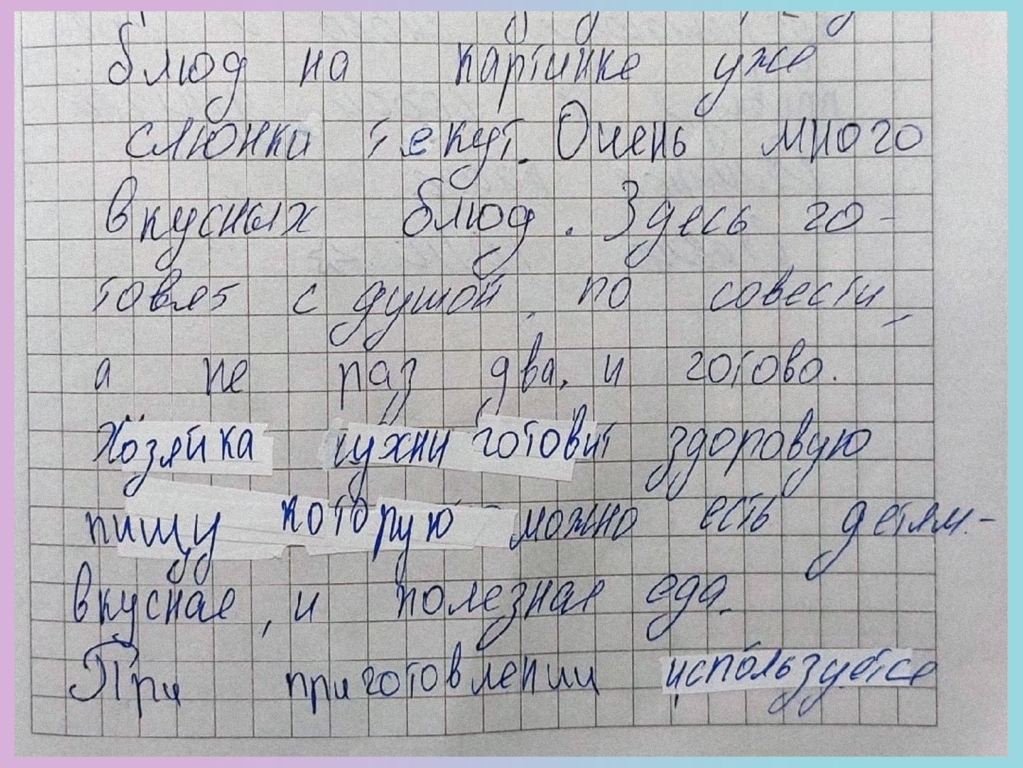 блюд на картинке уже
слюнки текут. Очень много
вкусных блюд. Здесь го-
товят с душой, по совести,
а не раз два, и готово.
Хозяйка кухни готовит здоровую
пищу которую можно есть детям-
вкусная, и полезная еда.
При приготовлении используется